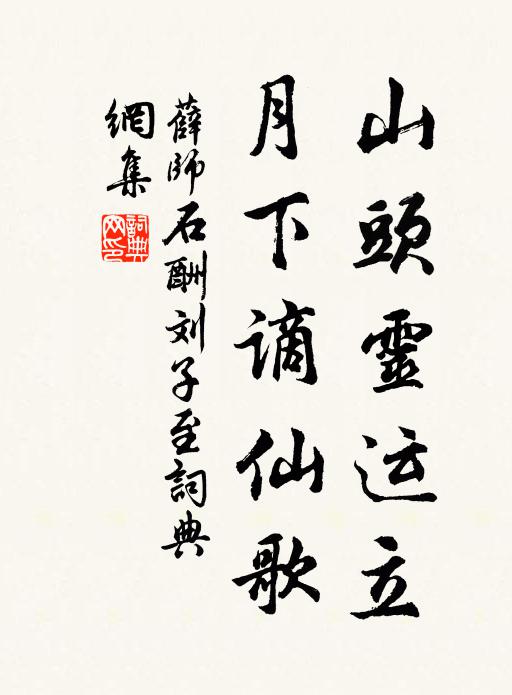 山頭靈运立
月下谪仙歌
薛師石酬刘子至詞典
網集
詞典網印